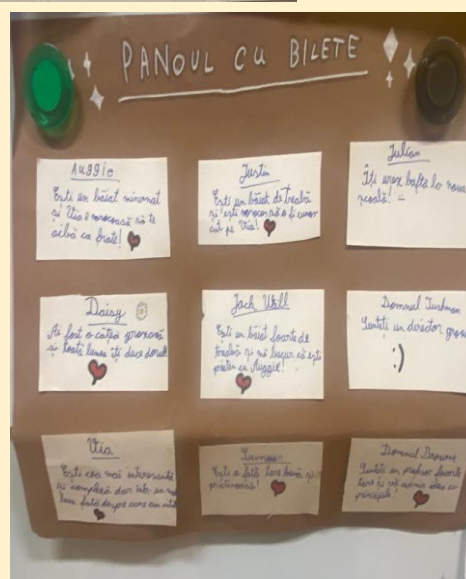 PANOUL CU BILETE
Auggie
Ești un băiat minunat
și Via e norocoasă să te
aibă ca frate!
Justin
Ești un băiat de treabă
și ești norocos să o fi cunos
cut pe Via!
Julian
Îți urez baftă la noua
școală! :)
Daisy
Ai fost o cățea grozavă
și toată lumea îți duce dorul!
Jack Will
Ești un băiat foarte de
treabă și mă bucur că ești
prieten cu Auggie!
Domnul Tushman
Sunteți un director groza
:)
Via
Ești cea mai interesantă
și complexă dar
fată despre care am citit
Summer
Ești o fată tare bună și
prietenoasă!
Domnul Browne
Sunteți un profesor favorit
tare și vă admir
principiile!